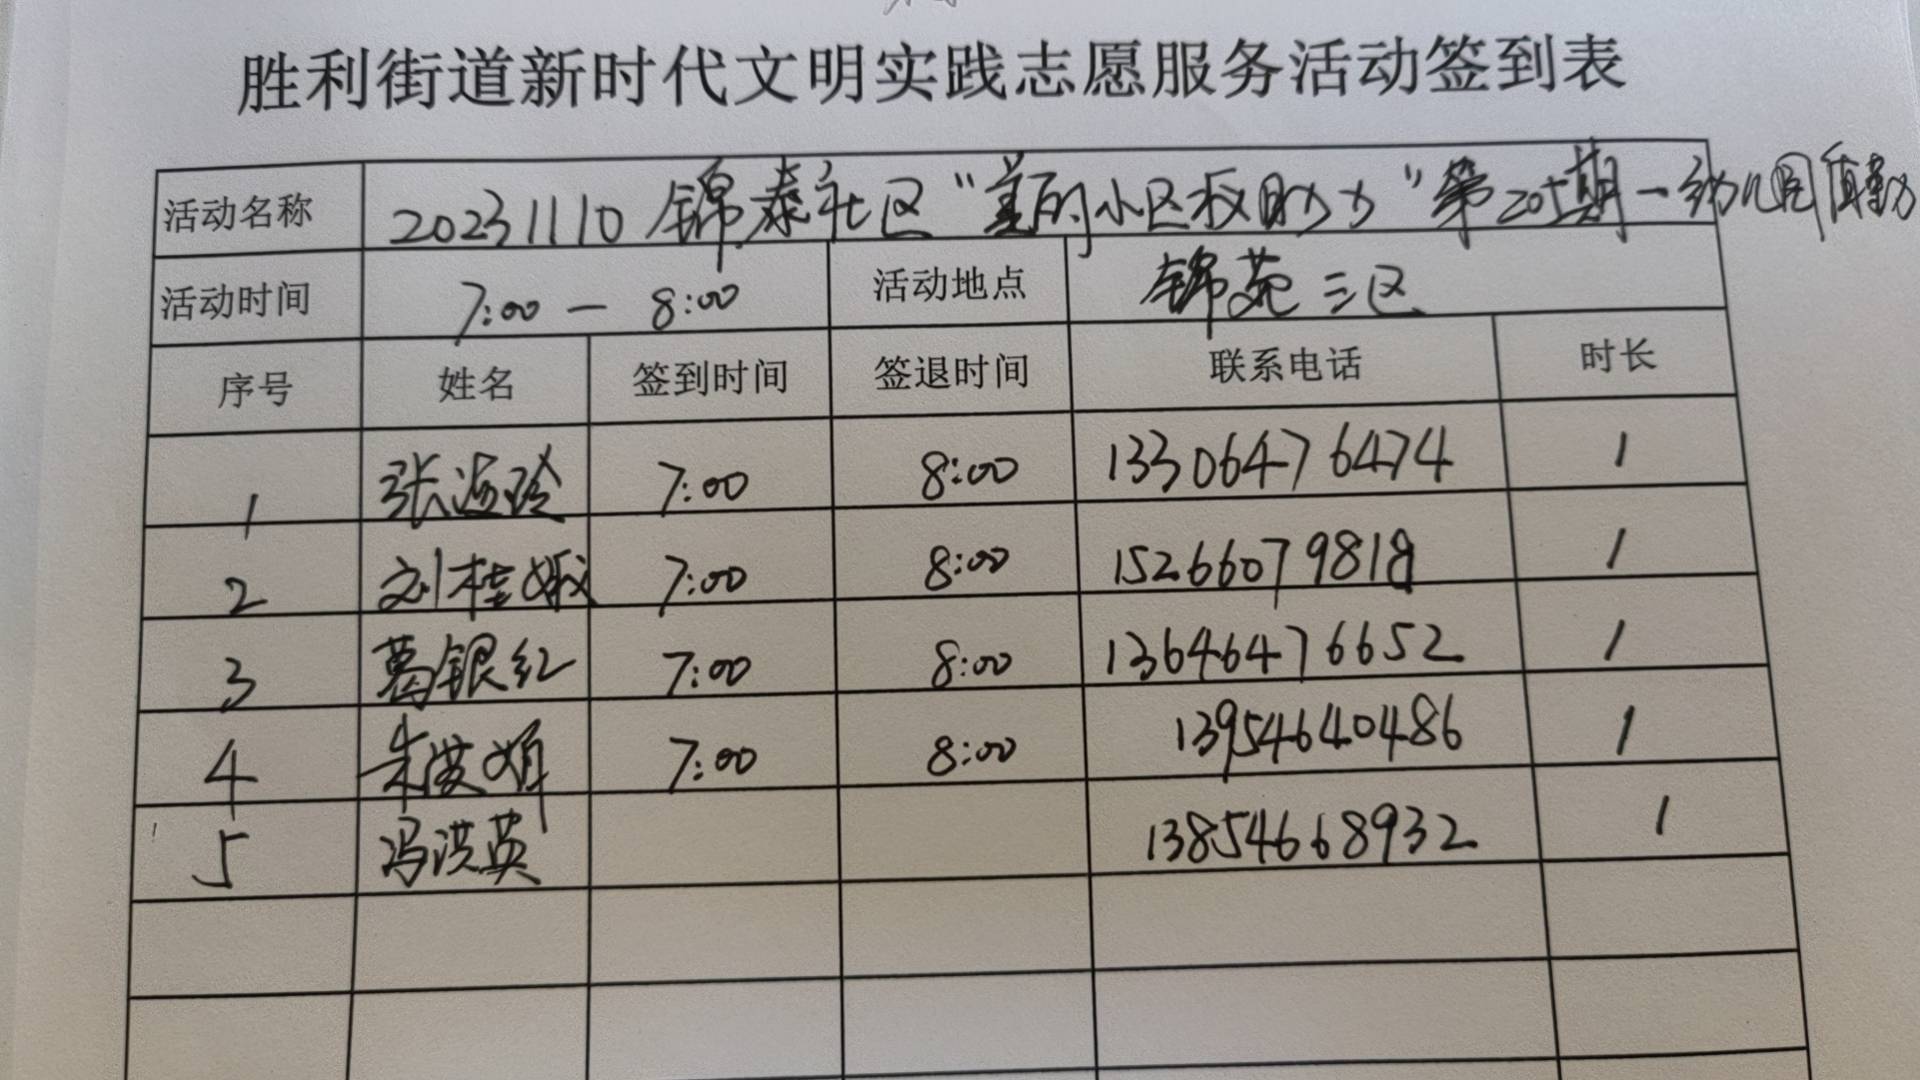 胜利街道新时代文明实践志愿服务活动签到表
活动名称 20231110 锦泰社区“美的小区 助力”第205期一幼儿园值勤
活动时间 7:00 — 8:00 活动地点 锦苑三区
序号 姓名 签到时间 签退时间 联系电话 时长
1 张海玲 7:00 8:00 13306476474 1
2 刘桂娥 7:00 8:00 15266079818 1
3 葛银红 7:00 8:00 13646476652 1
4 朱 7:00 8:00 13954640486 1
5 冯洪英 13854668932 1